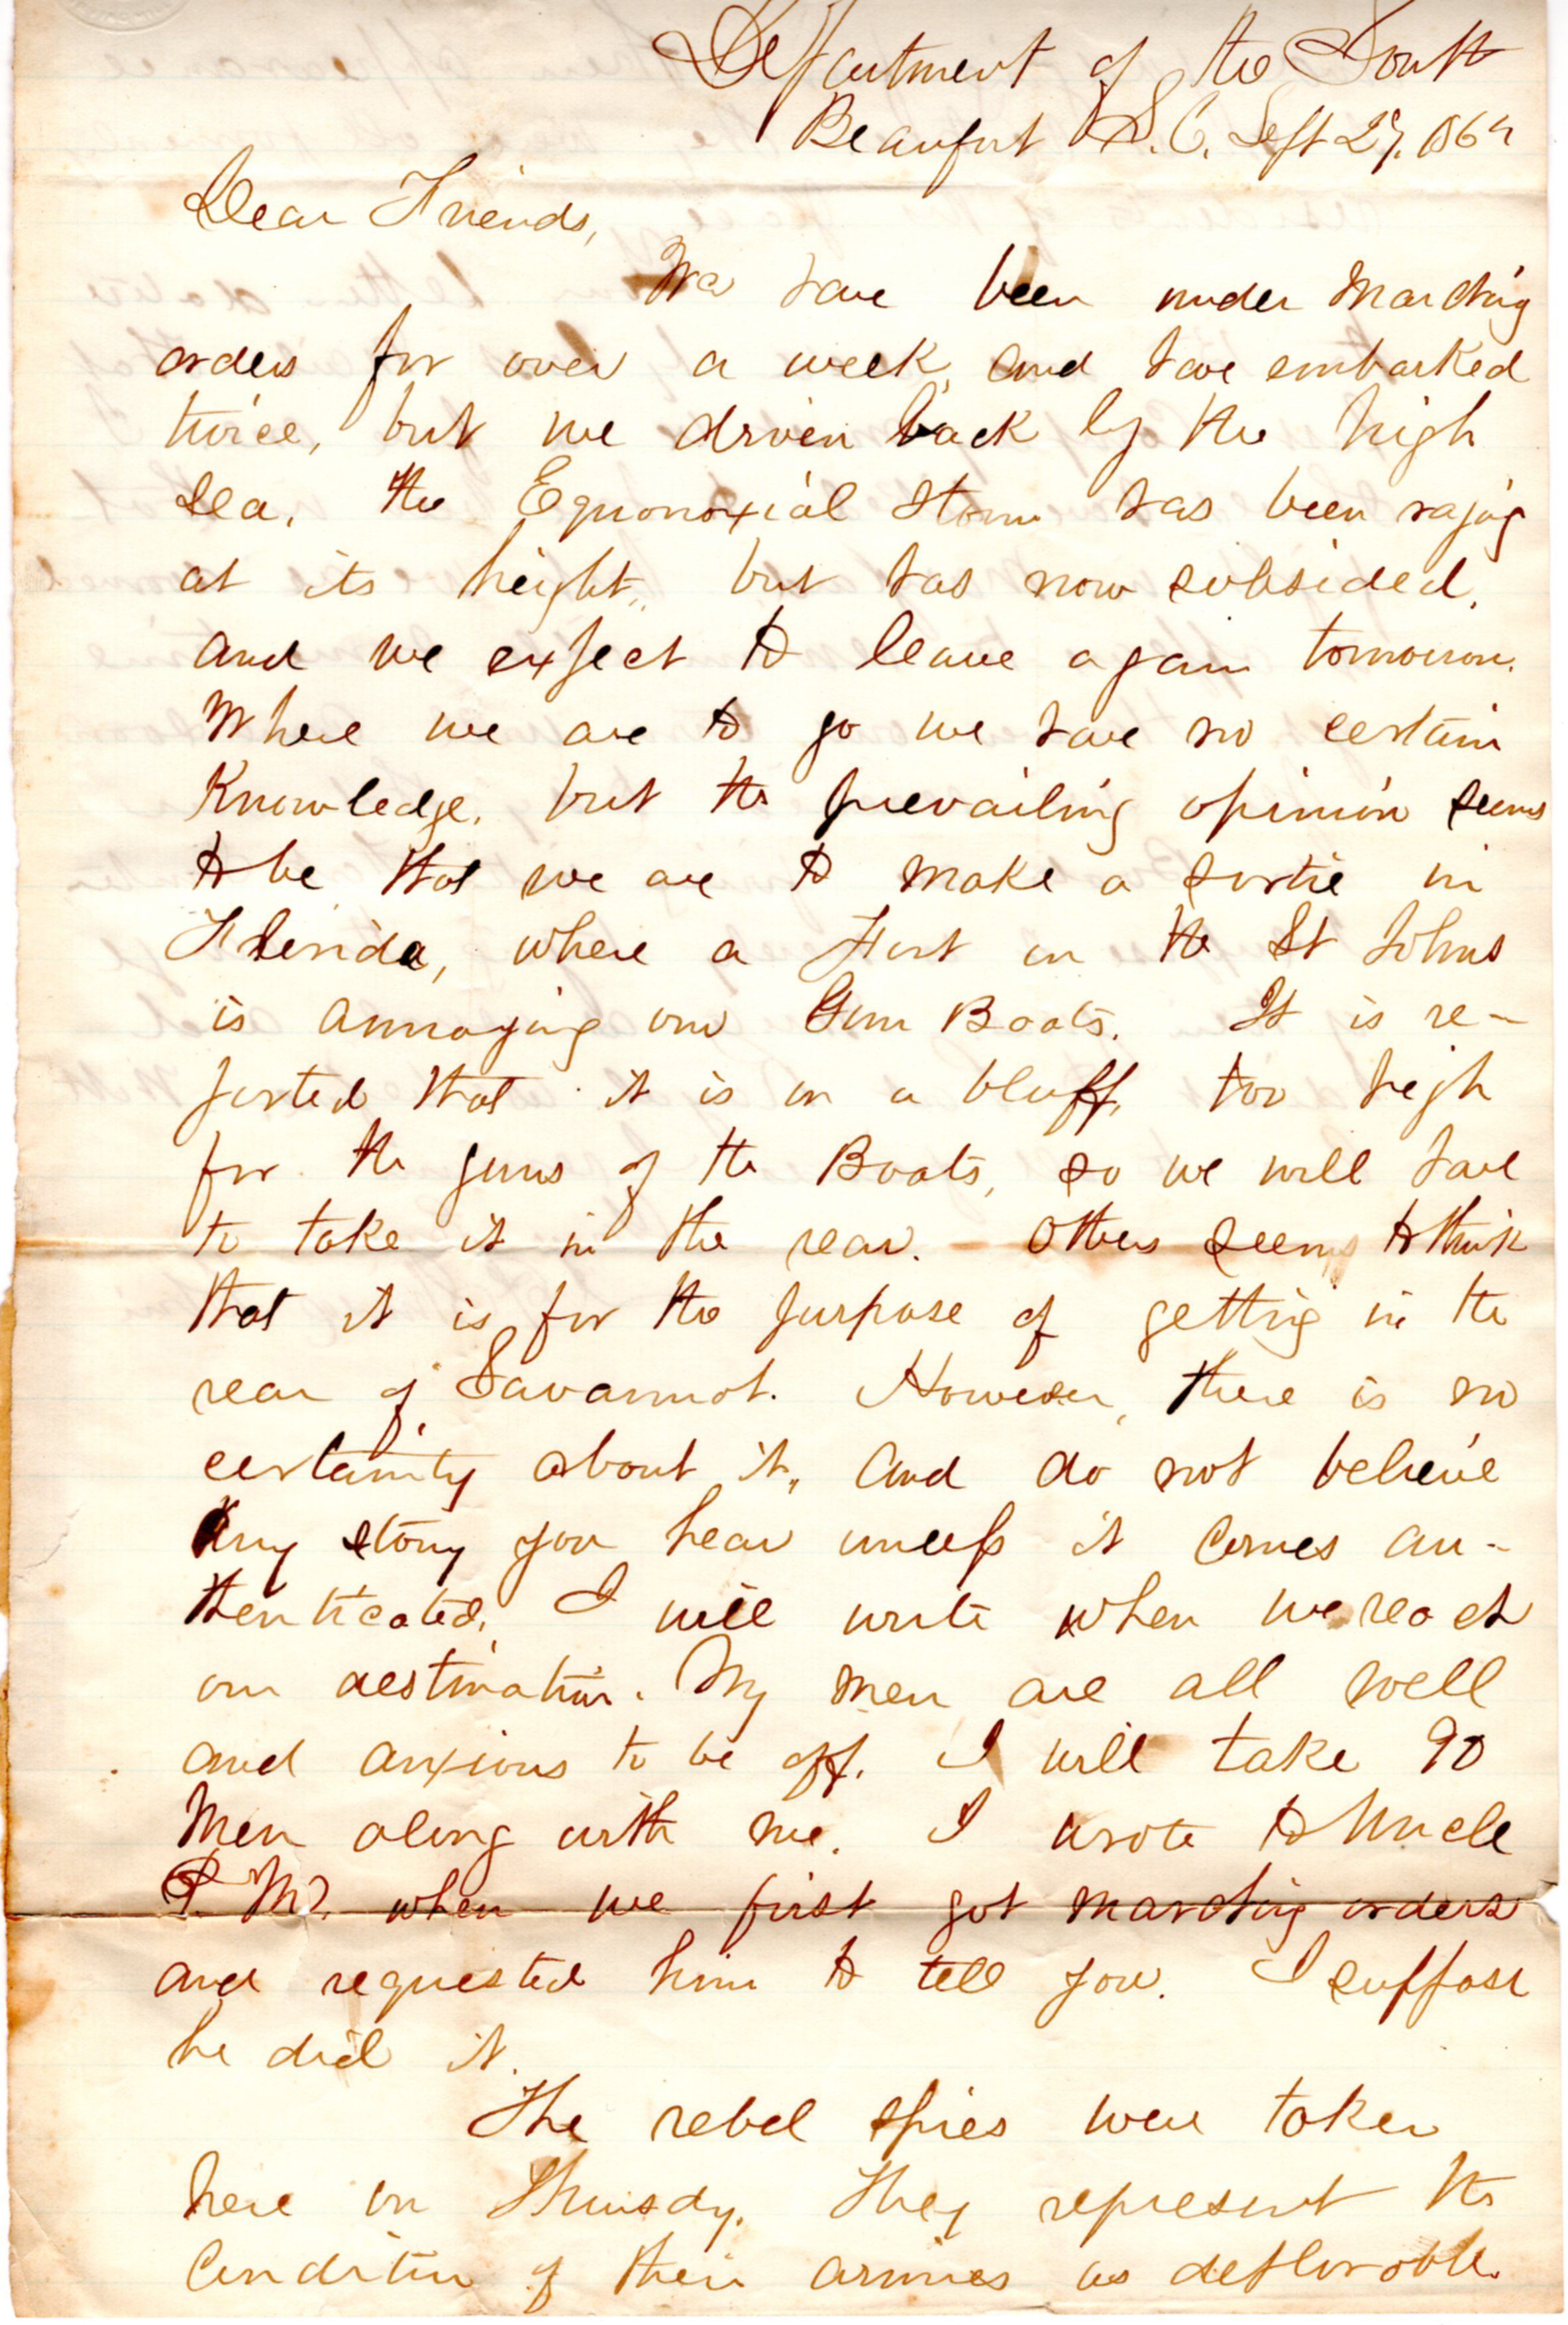 Department of the South
Beaufort S.C. Sept 27, 1862
Dear Friends,
We have been under Marching
orders for over a week, and have embarked
twice, but we driven back by the high
Sea. the Equonoxial Storm has been raging
at its height, but has now subsided,
and we expect to leave again tomorrow.
Where we are to go we have no certain
Knowledge, but the prevailing opinion seems
to be that we are to make a sortie in
Florida, where a Fort on the St Johns
is annoying our Gun Boats. It is re-
ported that it is on a bluff, too high
for the guns of the Boats, so we will have
to take it in the rear. - Others seems to think
that it is for the purpose of getting in the
rear of Savannah. However, there is no
certainty about it, and do not believe
Any story you hear uneless it comes au-
thenticated. I will write when we reach
our destination. My men are all well
and anxious to be off. I will take 90
Men along with me. I wrote to Uncle
P. M? when we first got marching orders
and requested him to tell you. I suppose
he did it.
The rebel spies were taken
here on Thursdy. They represent the
Condition of their armies as deplorable.